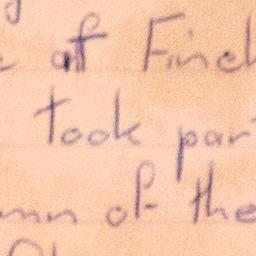 at Finch
took par
mn of the